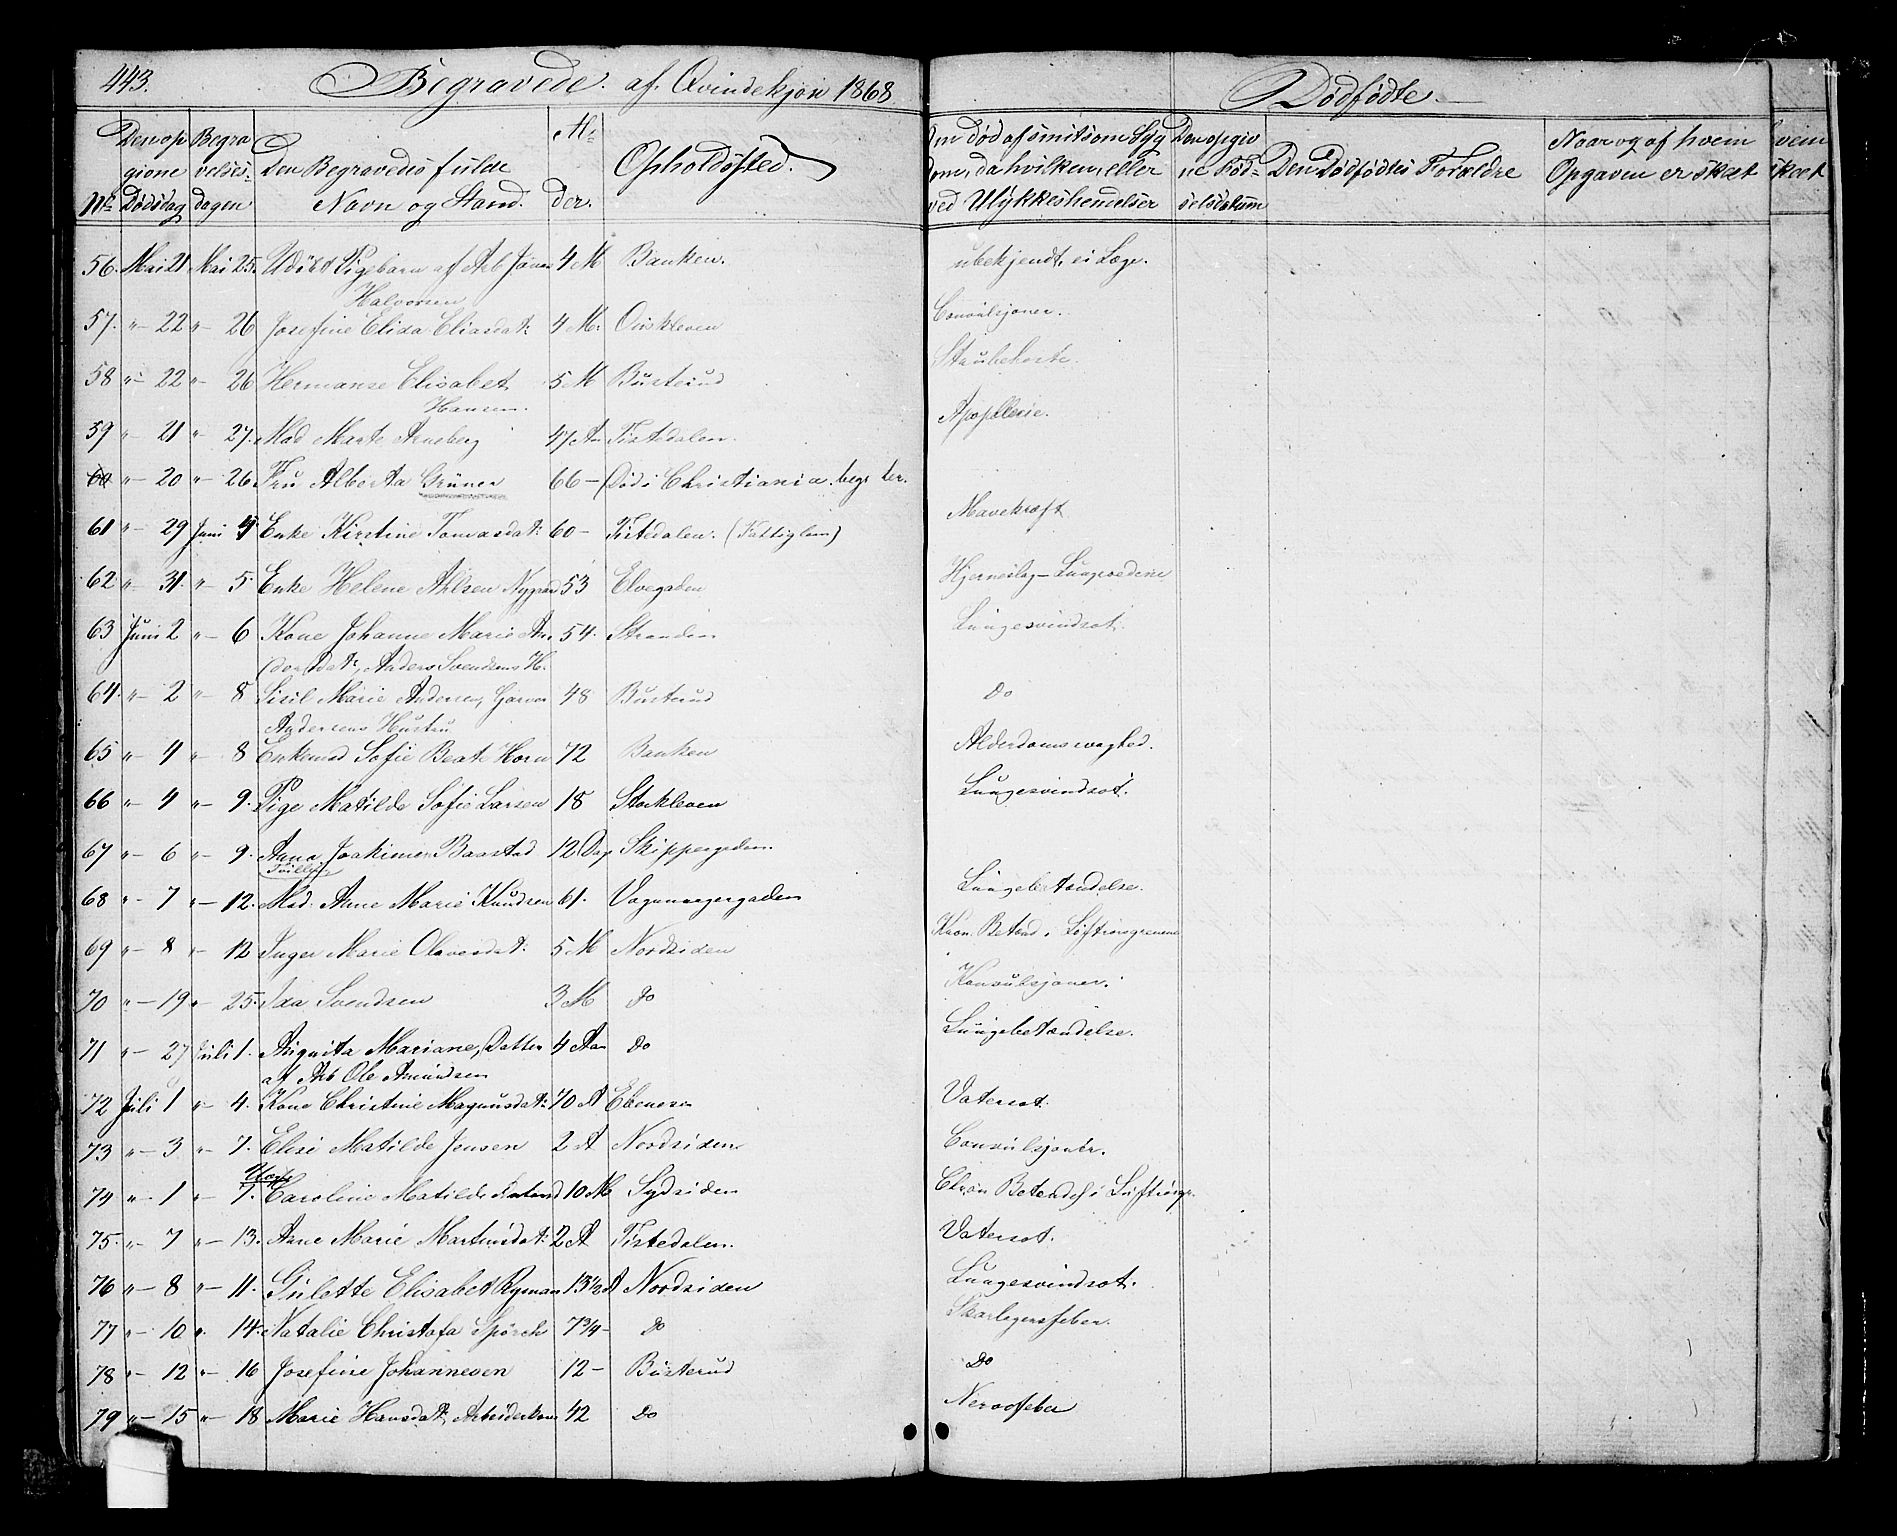 443. Begravede af Qvindekjøn 1868 Dødfødte.
Nr. Den op givne Dødsdag Begra velses- dagen Den Begravedes fulde Navn og Stand. Al- der. Opholdssted. Om død af smitsom Syg dom, da hvilken, eller ved Ulykkeshendelser Den opgiv ne Fød- selsdatum Den Dødfødtes Forældre Naar og af hvem Opgaven er skeet
56. Mai 21 Mai 25. Udøbt Pigebarn af Arb Johan 4 M Banken. ubekjendt, ei Læge.
Halvorsen
57. " - 22 " - 26 Josefine Elisa Eliasdatr 4 M. Ouskleven Convulsjoner.
58 " - 22 " - 26 Hermanse Elisabet 5 M Busterud Stubehoste.
Hansen.
59 " - 21 " - 27. Mad Marte Arneberg 47 Aar Tistedalen. Apoplexie.
60 " - 20 " - 26. Fru Alberta Grüner 66 - (Død i Christiania. begr her.
61 " - 29 Juni 4 Enke Kirstine Tomasdatr 60 - Tistedalen. (Fattiglem) Mavekræft
62. " - 31. " - 5. Enke Helene Ahlsen Nygaard 53 Elvegaden Hjerneslag - Lungeødeme
63 Juni 2 " - 6 Kone Johanne Marie An 54. Stranden Lungesvindsot.
dorsdatr, Anders Svendsens H.
64. " - 2 " - 8 Sisil Marie Andersen, Garver 48 Busterud Do
Andersens Hustru
65 " - 4 " - 8 Enkemad Sofie Beate Horn 72 Banken Alderdomssvaghed.
66 " - 4 " - 9. Pige Matilde Sofie Larsen 18 Stokkleven Lungesvindsot.
67 " - 6 " - 9. Anna Joakimen Baastad 12 Dag Skippergaden.
Tvilling
68 " - 7 " - 12. Mad. Anne Marie Knudsen 61. Vognmagergaden Lungebetændelse.
69 " - 8 " - 12 Inger Marie Olavesdatr. 5 M Nordsiden Kron. Betænd. i Luftrørsgrenene
70 " - 19 " - 25. Ida Svendsen 3 M Do Konvulsjoner.
71 " - 27 Juli 1. Augusta Mariane, Datter 4 Aar Do Lungebetændelse.
af Arb Ole Amundsen
72 Juli 1 " - 4. Kone Christine Magnusdatr 70 A Ebeneser Vatersot.
73 " - 3 " - 7. Elise Matilde Jensen 2 A Nordsiden Convulsjoner.
74 " - 1 " - 7. Caroline Matilde 10 M Sydsiden Chron Betændels i Luftrørsgr.
75. " - 7 " - 13. Anne Marie Martinsdatr. 2 A Tistedalen. Vatersot.
76 " - 8 " - 11. Gulette Elisabet Ryman 13 1/2 A Nordsiden Lungesvindsot.
77 " - 10 " . 14. Natalie Christofa Spörck 7 3/4 - Do Skarlagensfeber.
78 " - 12 " - 16 Josefine Johannesen 12 - Busterud Do
79 " - 15 " - 18 Marie Hansdatr, Arbeiderkone 42 Do Nervefeber